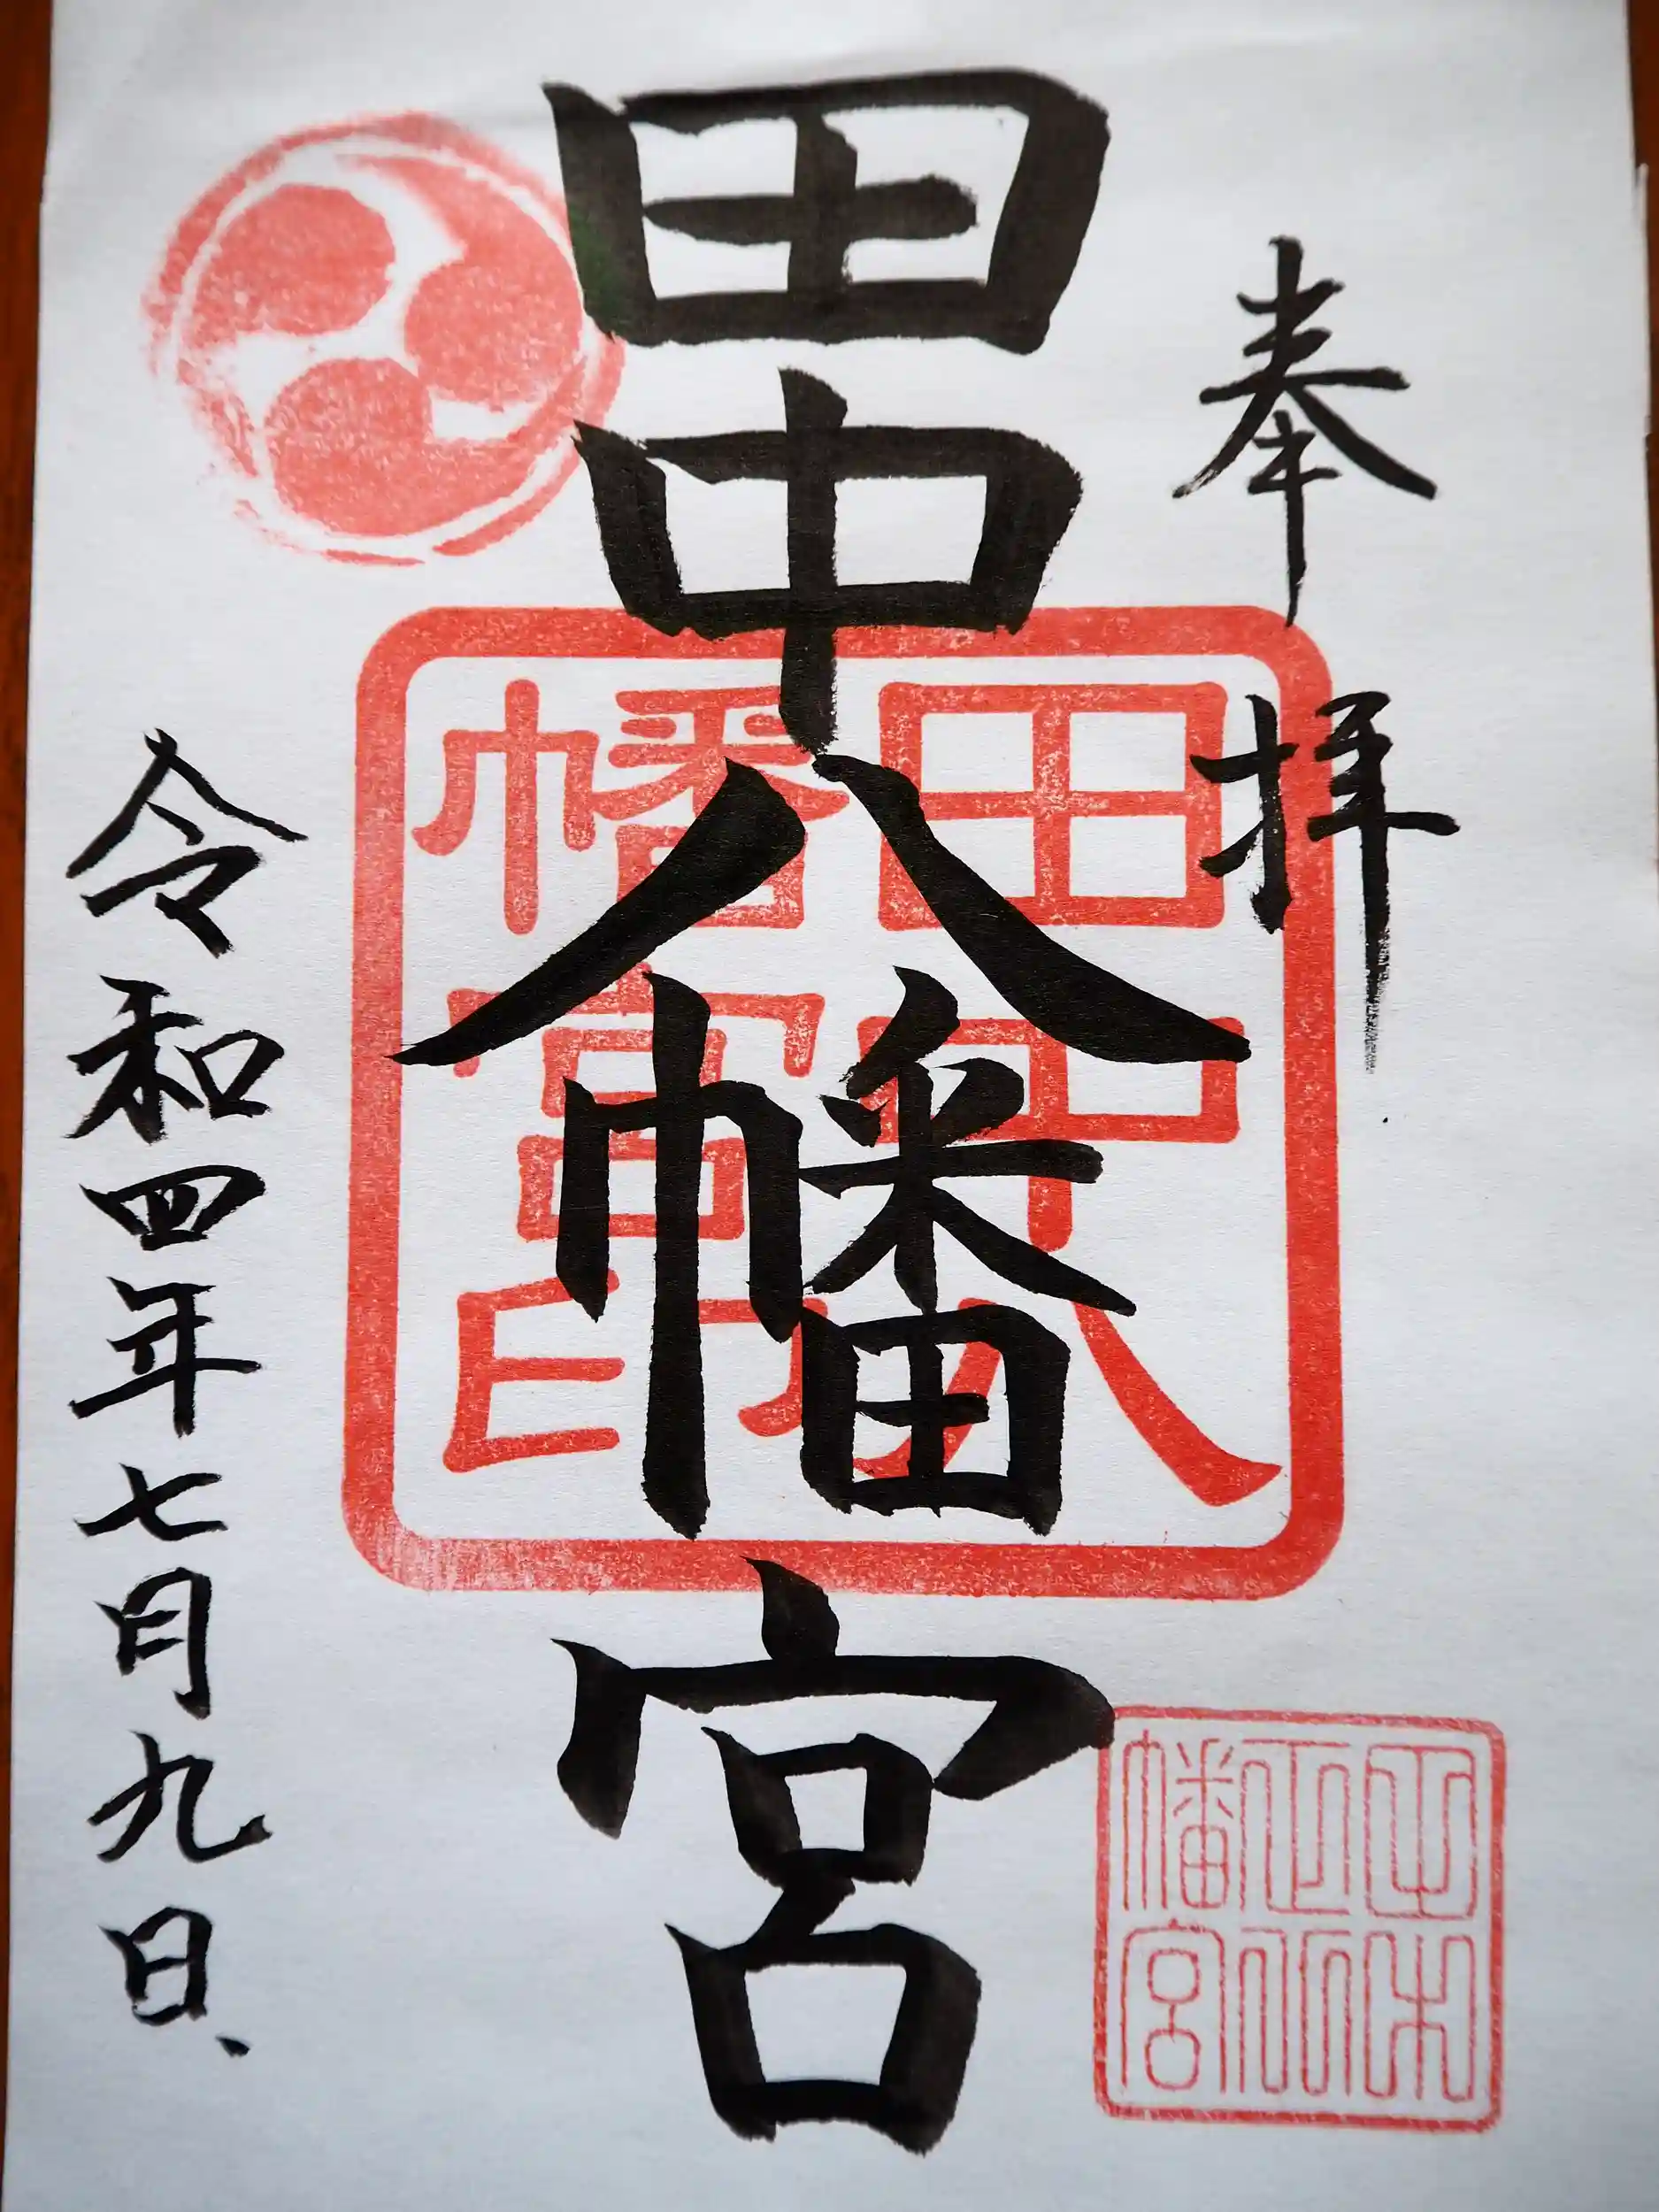 奉拝
田中八幡宮
田中八
幡宮印
幡宮
令和四年七月九日、